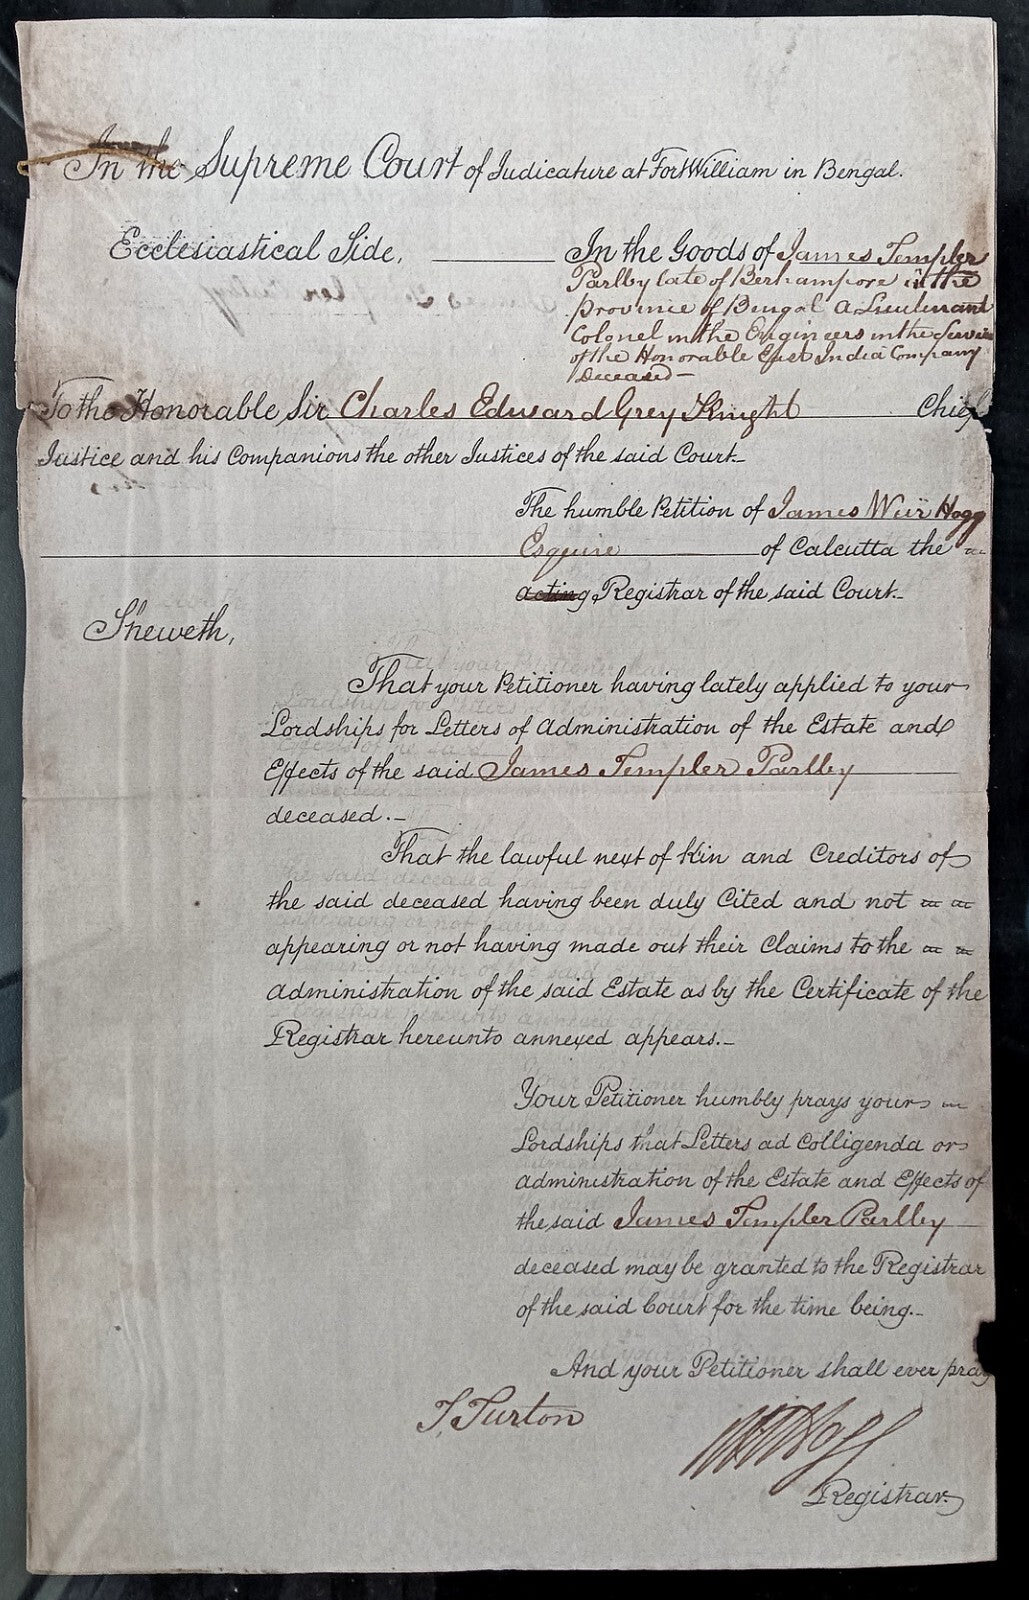 In the Supreme Court of Judicature at Fort William in Bengal.
Ecclesiastical Side,
In the Goods of James Templer
Parlby late of Berhampore in the
Province of Bengal a Lieutenant
Colonel in the Engineers in the Service
of the Honorable East India Company
deceased—
To the Honorable Sir Charles Edward Grey Knight Chief
Justice and his Companions the other Justices of the said Court—
The humble Petition of James Weir Hogg
Esquire of Calcutta the
acting Registrar of the said Court—
Sheweth,
That your Petitioner having lately applied to your
Lordships for Letters of Administration of the Estate and
Effects of the said James Templer Parlby
deceased.—
That the lawful next of Kin and Creditors of
the said deceased having been duly Cited and not
appearing or not having made out their Claims to the
administration of the said Estate as by the Certificate of the
Registrar hereunto annexed appears.—
Your Petitioner humbly prays your
Lordships that Letters ad Colligenda or
administration of the Estate and Effects of
the said James Templer Parlby
deceased may be granted to the Registrar
of the said Court for the time being.—
And your Petitioner shall ever pray
T. Turton
JW Hogg
Registrar.